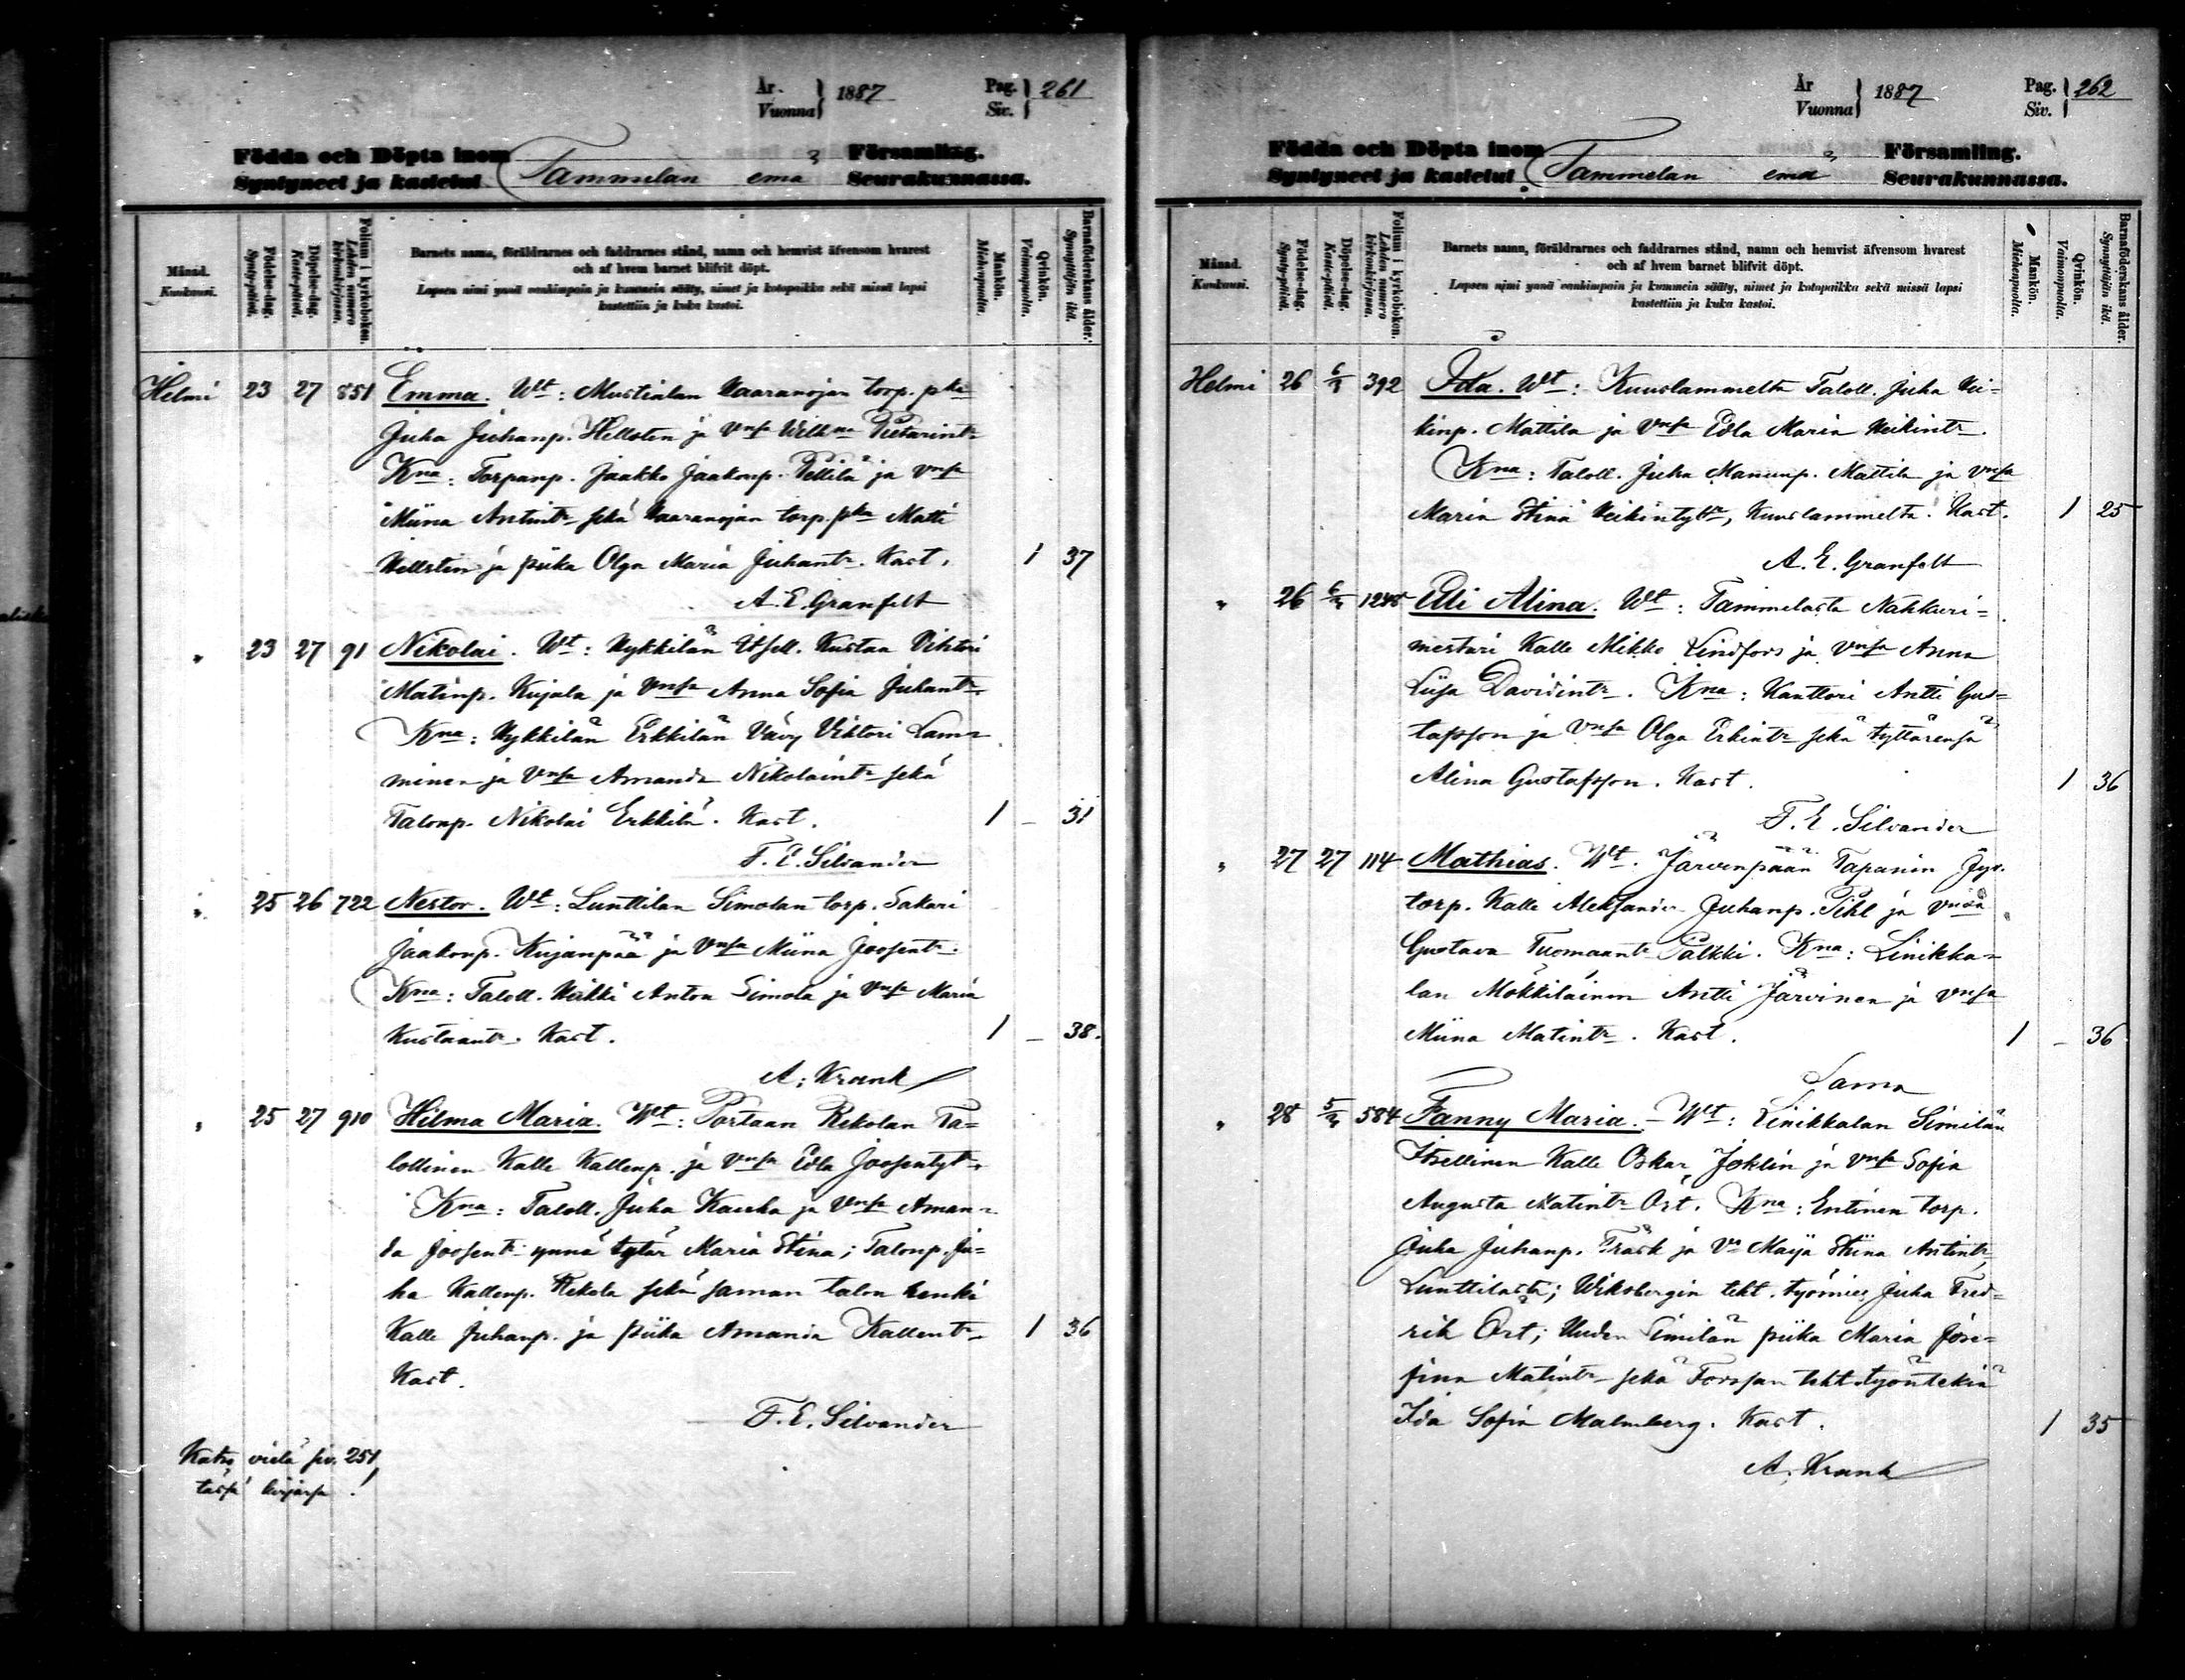 År Vuonna 1887 Pag. Siv. 261
Födda och Döpta inom Församling.
Syntyneet ja kastetut Tammelan emä Seurakunnassa.
Månad. Kuukausi.
Födelse-dag. Synty-päivä.
Döpelse-dag. Kaste-päivä.
Folium i kyrkoboken. Lehden numero kirkonkirjassa.
Barnets namn, föräldrarnes och faddrarnes stånd, namn och hemvist äfvensom hvarest
och af hvem barnet blifvit döpt.
Lapsen nimi ynnä vanhimpain ja kummein sääty, nimet ja kotopaikka sekä missä lapsi
kastettiin ja kuka kastoi.
Mankön. Miehenpuolia.
Qvinkön. Vaimonpuolia.
Barnaföderskans ålder. Synnyttäjän ikä.
Helmi 23 27 851 Emma. Wt: Mustialan Haaranojan torp. pka
Juha Juhanp. Hellsten ja Vnsa Wilhna Pietarintr
Kna: Torpanp. Jaakko Jaakonp. Pellilä ja Vnsa
Miina Antintr sekä Haaranojan torp. pka Matti
Hellsten ja piika Olga Maria Juhantr. Kast. 1 37
A. E. Granfelt
" 23 27 91 Nikolai. Wt: Hykkilän Itsell. Kustaa Vihtori
Matinp. Kujala ja Vnsa Anna Sofia Juhantr.
Kna: Hykkilän Erkkilän Vävy Viktori Lam=
minen ja Vnsa Amanda Nikolaintr sekä
Talonp. Nikolai Erkkilä. Kast. 1 – 31
F. E. Silvander
" 25 26 722 Nestor. Wt: Lunttilan Simolan torp. Sakari
Jaakonp. Kujanpää ja Vnsa Miina Joosentr.
Kna: Taloll. Heikki Anton Simola ja Vnsa Maria
Kustaantr. Kast. 1 – 38.
A. Krank
" 25 27 910 Hilma Maria. Wt: Portaan Rekolan Ta=
lollinen Kalle Kallenp. ja Vnsa Edla Joosentytr.
Kna: Taloll. Juha Kauha ja Vnsa Aman=
da Joosentr ynnä tytär Maria Stina; Talonp. Ju=
ha Kallenp. Rekola sekä saman talon renki
Kalle Juhanp. ja piika Amanda Kallentr 1 36
Kast.
F. E. Silvander
Katso vielä siv. 251
tässä kirjassa!
År Vuonna 1887 Pag. Siv. 262
Födda och Döpta inom Församling.
Syntyneet ja kastetut Tammelan emä Seurakunnassa.
Månad. Kuukausi.
Födelse-dag. Synty-päivä.
Döpelse-dag. Kaste-päivä.
Folium i kyrkoboken. Lehden numero kirkonkirjassa.
Barnets namn, föräldrarnes och faddrarnes stånd, namn och hemvist äfvensom hvarest
och af hvem barnet blifvit döpt.
Lapsen nimi ynnä vanhimpain ja kummein sääty, nimet ja kotopaikka sekä missä lapsi
kastettiin ja kuka kastoi.
Mankön. Miehenpuolia.
Qvinkön. Vaimonpuolia.
Barnaföderskans ålder. Synnyttäjän ikä.
Helmi 26 6/3 392 Ida. Wt: Kuuslammelta Taloll. Juha Hei=
kinp. Mattila ja Vnsa Edla Maria Heikintr.
Kna: Taloll. Juha Manunp. Mattila ja Vnsa
Maria Stina Heikintytr, Kuuslammelta. Kast. 1 25
A. E. Granfelt
" 26 6/3 1248 Elli Alina. Wt: Tammelasta Nahkuri=
mestari Kalle Mikko Lindfors ja Vnsa Anna
Liisa Davidintr. Kna: Kanttori Antti Gus=
tafsson ja Vnsa Olga Erkintr sekä tyttärensä
Alina Gustafsson. Kast. 1 36
F. E. Silvander
" 27 27 114 Mathias. Wt. Järvenpään Tapanin
torp. Kalle Aleksander Juhanp. Pihl ja Vnsa
Gustava Tuomaantr Palkki. Kna: Linikka=
lan Mökkiläinen Antti Järvinen ja Vnsa
Miina Matintr. Kast. 1 – 36
Sama
" 28 5/3 584 Fanny Maria. – Wt: Linikkalan Similän
Itsellinen Kalle Oskar Joklin ja Vnsa Sofia
Augusta Matintr Öst. Kna: Entinen torp.
Juha Juhanp. Träsk ja Vn Maija Stiina Antintr,
Lunttilasta; Wiksbergin teht. työmies Juha Fred=
rik Öst; Uuden Similän piika Maria Jose=
fina Matintr sekä Forssan teht. työntekiä
Ida Sofia Malmberg. Kast. 1 35
A. Krank